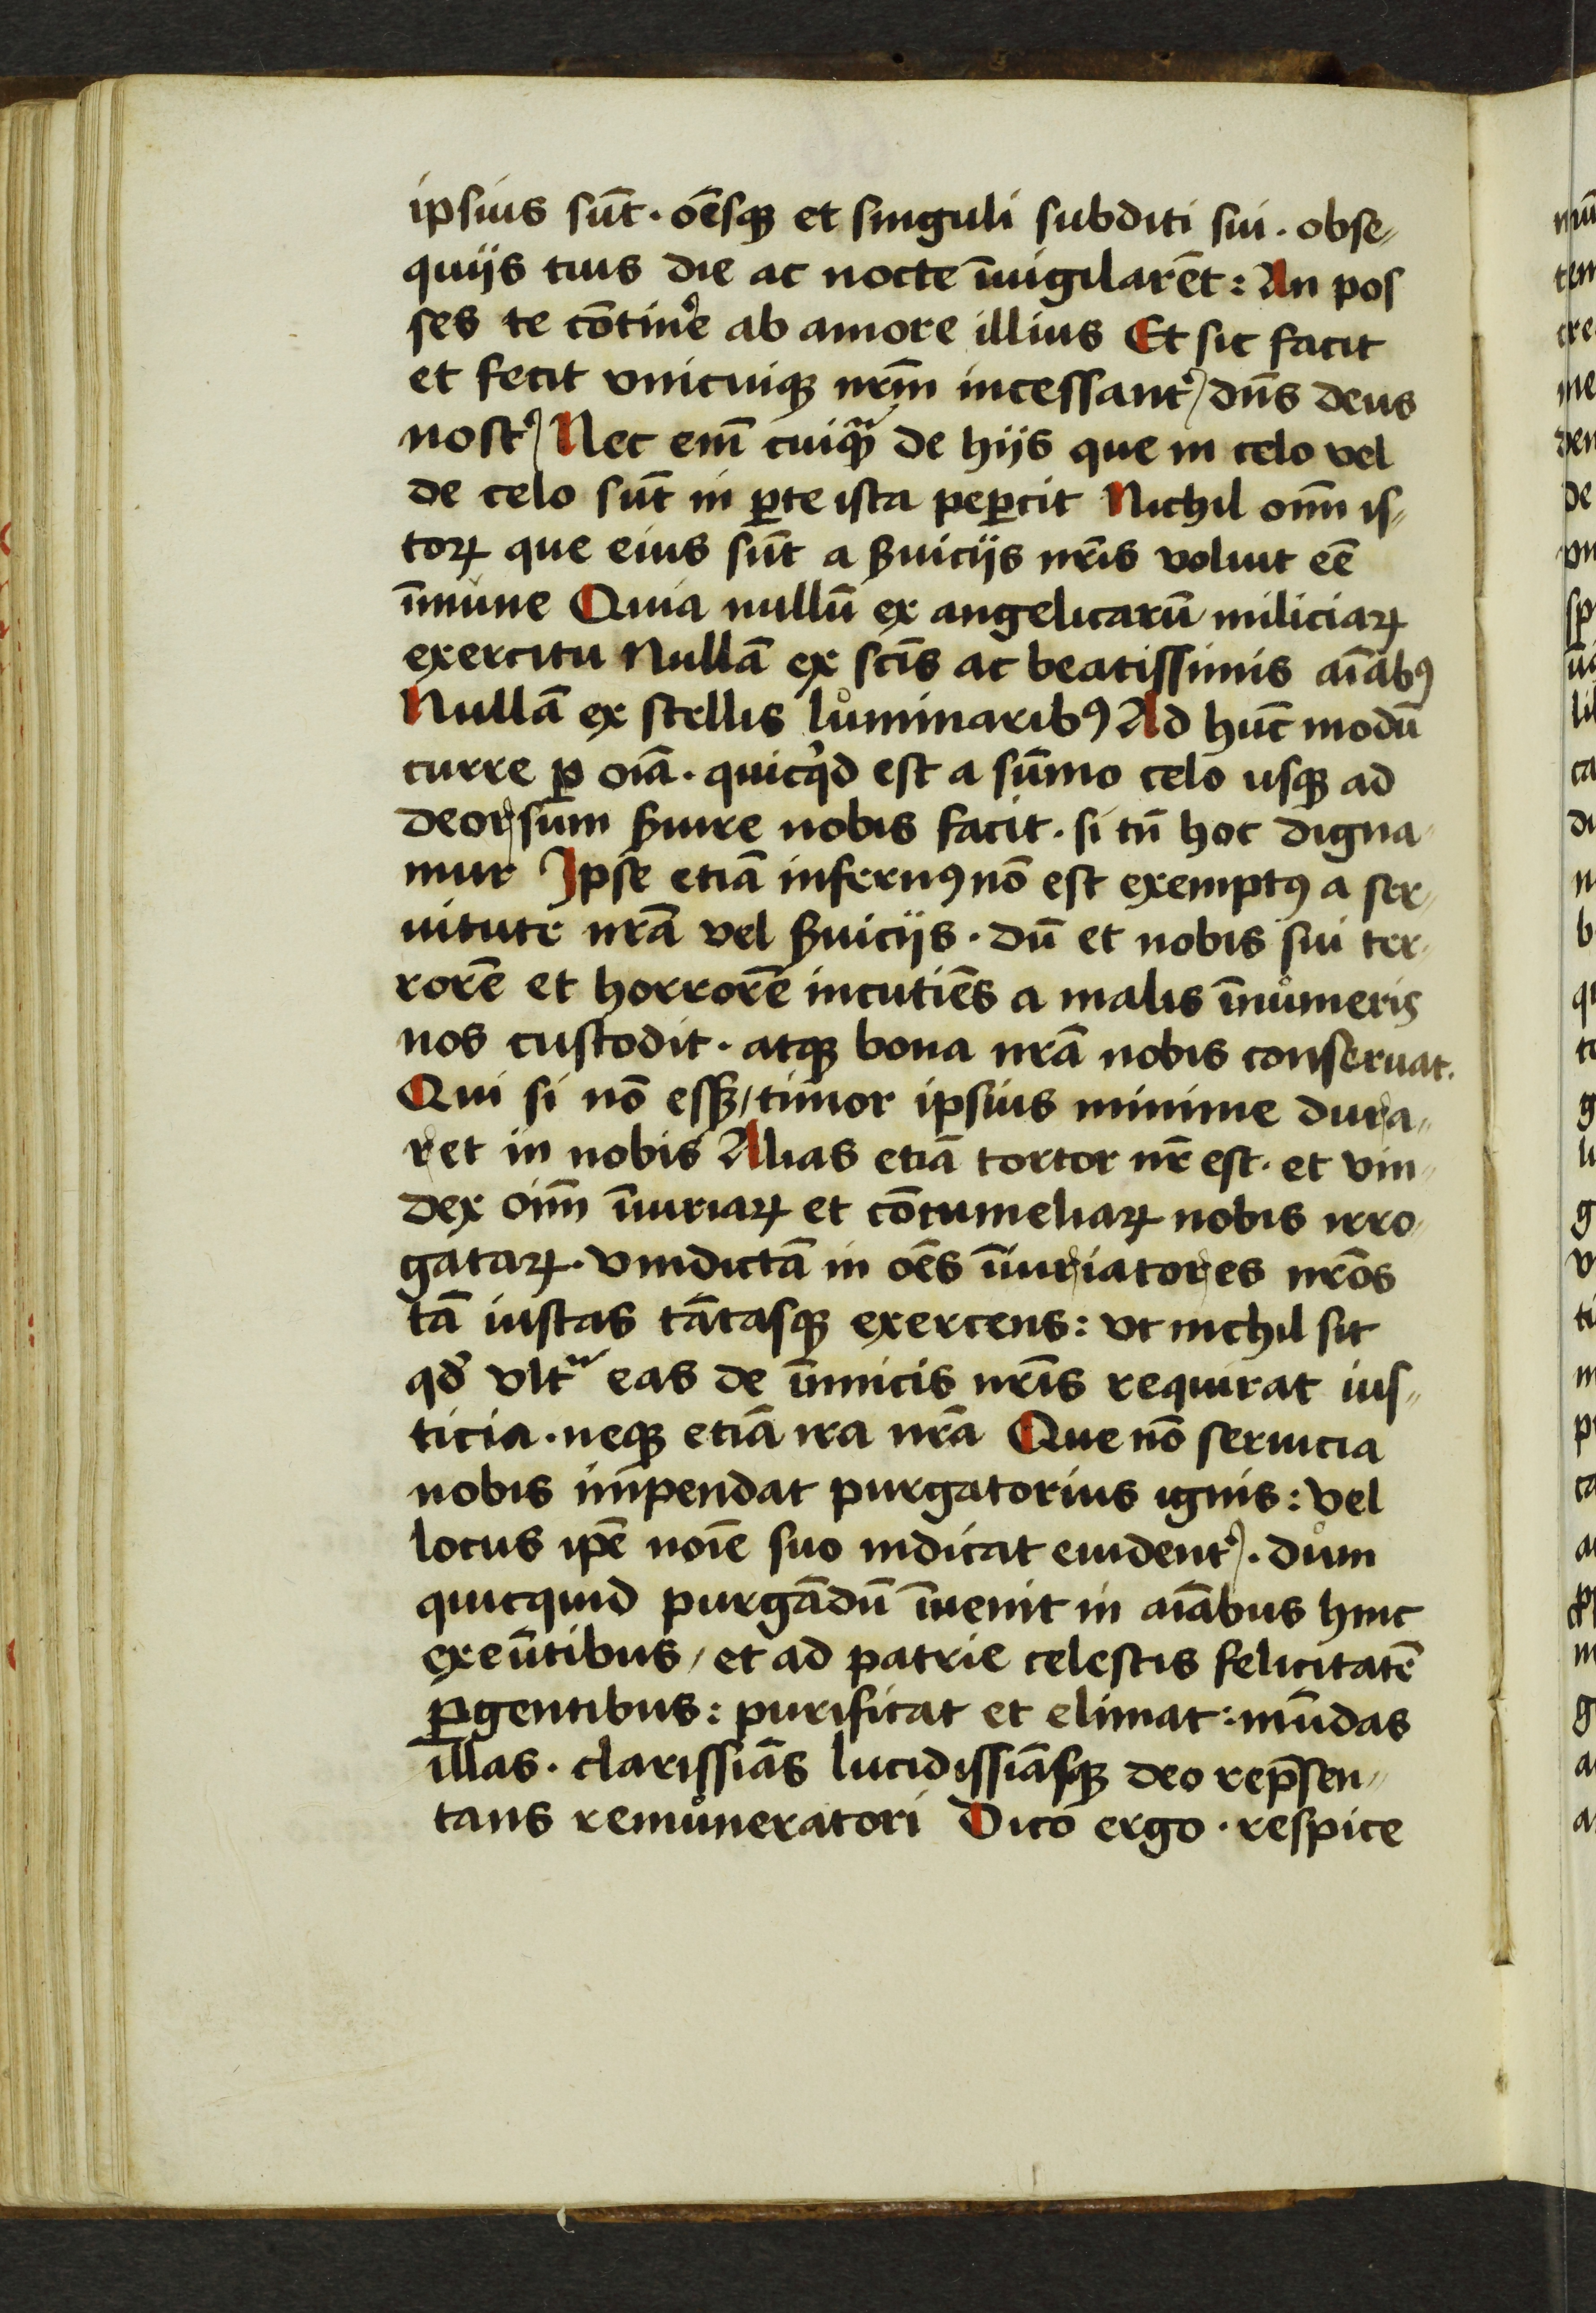 ipsius sūt · oēsqꝫ et singuli subditi sui · obse⸗
quijs tuis die ac nocte īuigilarēt : An pos
ses te cōtinˀe ab amore illius Et sic facit
et fecit vnicuiqꝫ nrm̄ incessantˀ / dn̄s deus
nostˀ / Nec em̄ cuiqᵃꝫ de hijs que in celo vel
de celo sūt in ꝑte ista peꝑcit Nichil oīm is⸗
toꝝ que eius sūt a ẜuicijs nrīs voluit eē
īmune Quia nullū ex angelicarū miliciaꝝ
exercitu Nullā ex scīs ac beatissimis aīabꝰ
Nullā ex stellis lůminaribꝰ Ad hūc modū
curre ꝑ oīa · quicqͥd est a sūmo celo usqꝫ ad
deorsum ẜuire nobis facit · si tn̄ hoc digna⸗
mur Ipse etiā infernꝰ nō est exemptꝰ a ser⸗
uitute nrā vel ẜuicijs · dū et nobis sui ter⸗
rorē et horrorē incutiēs a malis īnůmeris
nos custodit · atqꝫ bona nrā nobis conseruat.
Qui si nō essꝫ / timor ipsius minime dura⸗
ret in nobis Alias etiā tortor nr̄ est · et vin⸗
dex oīm īiuriaꝝ et cōtumeliaꝝ nobis irro⸗
gataꝝ · vindictā in oēs īiuriatores nrōs
tā iustas tātasqꝫ exercens : vt nichil sit
qd̕ vltᵃ eas de īimicis nrīs requirat ius⸗
ticia · neqꝫ etiā ira nrā Que nō seruicia
nobis impendat purgatorius ignis : vel
locus ipē noīe suo indicat euidentˀ · dům
quicquid purgādū īuenit in aīabus hinc
exeūtibus / et ad patrie celestis felicitatē
ꝑgentibus : purificat et elimat : mūdas
illas · clarissiās lucidissiāsqꝫ deo rep̄sen⸗
tans remůneratori Dico ergo · respice